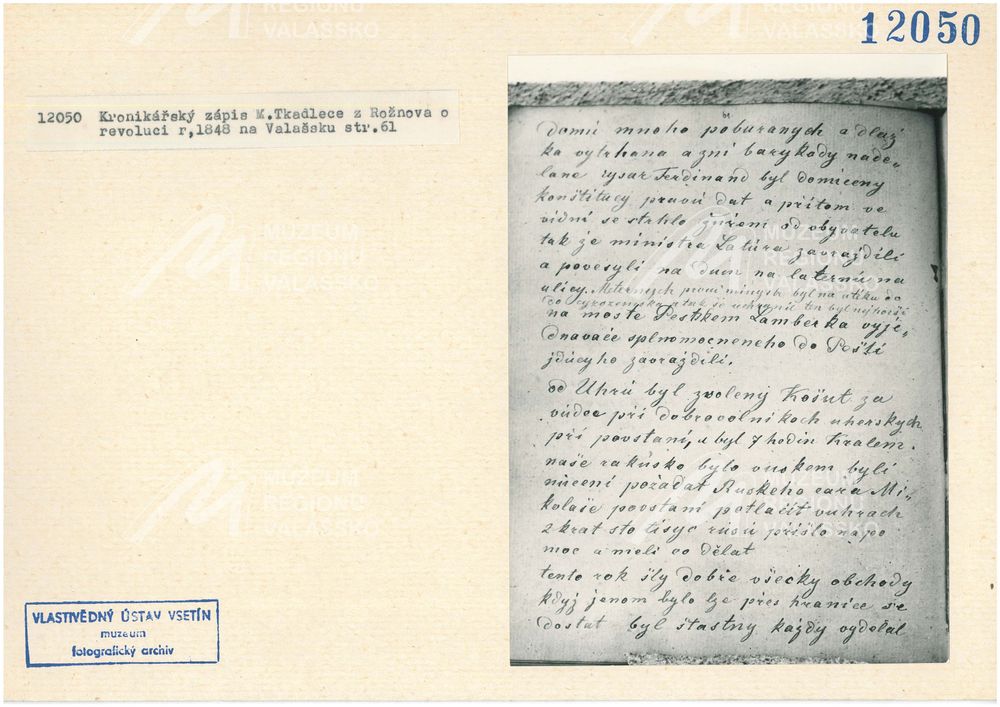 12050
12050 Kronikářský zápis M.Tkadlece z Rožnova o
revoluci r,1848 na Valašsku str.61
61
domů mnoho pobúraných a dlaž
ka vytrhana a zní barykady naďe-
lane cysař Ferdinand byl domiceny
konštitucy pravú dat a přitom ve
vídni se strhlo zuřeni od obyvatelu
tak že ministra Latúra zavraždili
a povesyli na dum na laternú na
ulicy. Meternych první minystr byl na utiku do
na moste Peštskem Lamberka vyji,
dnavače splnomocneneho do Pešti
jdúcyho zavraždili.
od Uhrú byl zvoleny Košut za
vúdce při dobrovolnikoch uherskych
při povstaní, a byl 7 hodin Kralem.
naše rakúsko bylo vuskem byli
núceni požadat Ruskeho cara Mi-
kolaše povstaní potlačit vuhrach
2 krat sto tisyc rusú přišlo na po
moc a meli co dělat
tento rok šly dobře všecky obchody
když jenom bylo lze přes hranice se
dostat byl štastny každy vydělal
VLASTIVĚDNÝ ÚSTAV VSETÍN
muzeum
fotografický archiv
MUZEUM
REGIONU
VALAŠSKO